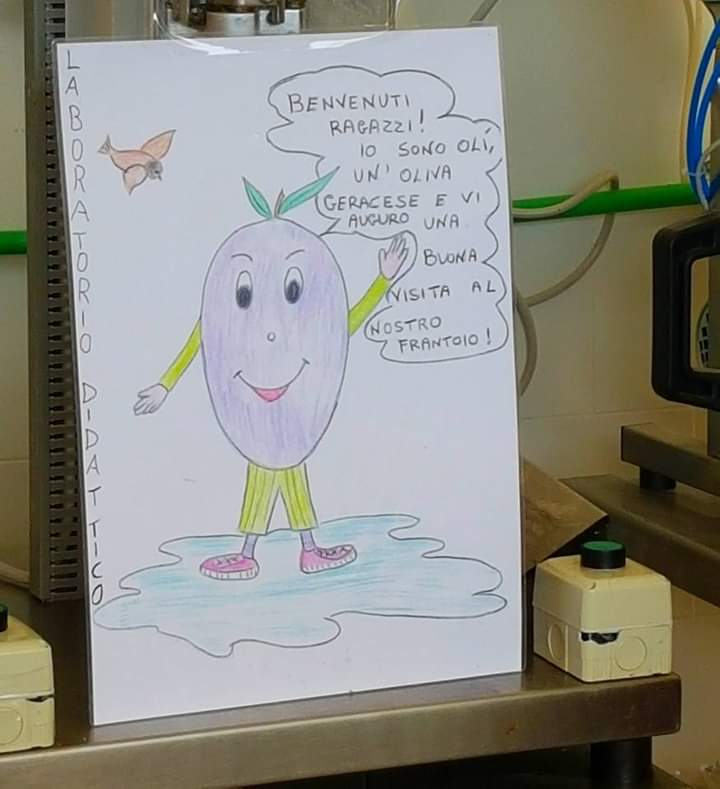 LABORATORIO DIDATTICO
BENVENUTI
RAGAZZI!
IO SONO OLÌ,
UN' OLIVA
GERACESE E VI
AUGURO UNA
BUONA
VISITA AL
NOSTRO
FRANTOIO!